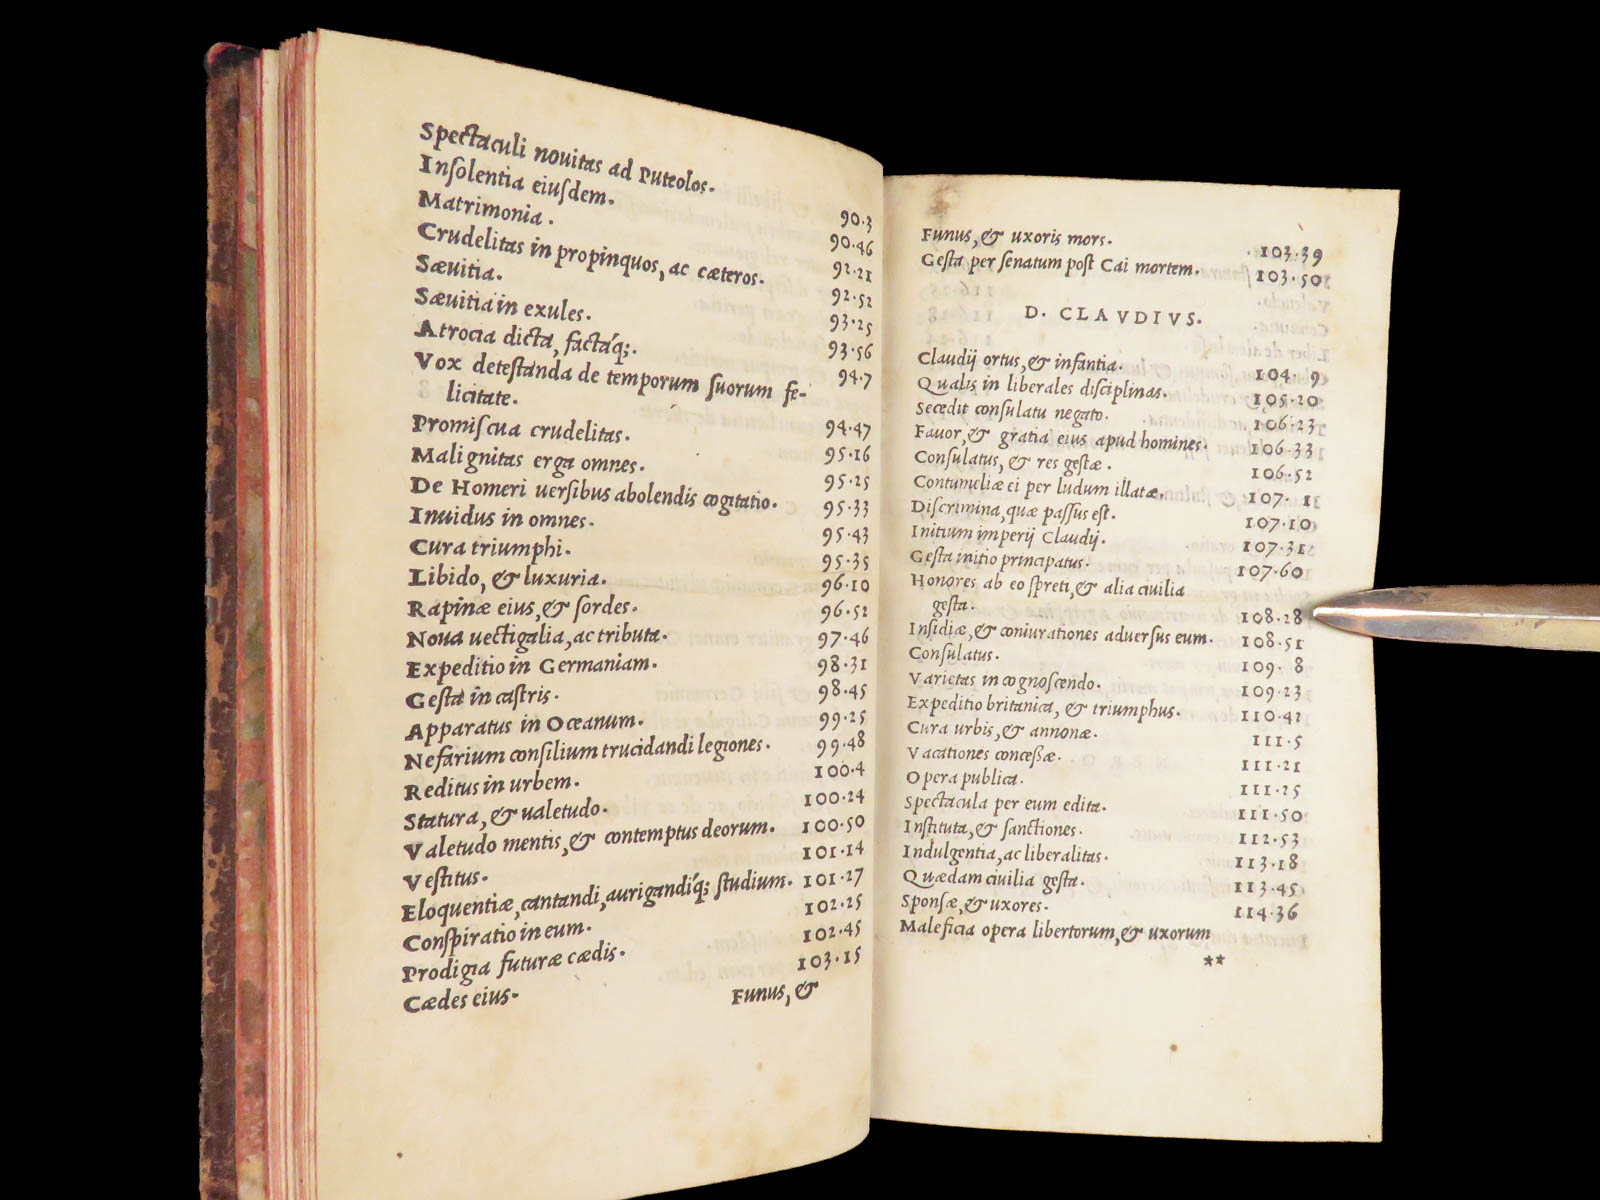 Spectaculi nouitas ad Puteolos. 90.3
Inſolentia eiuſdem. 90.46
Matrimonia. 92.21
Crudelitas in propinquos, ac cæteros. 92.52
Sæuitia. 93.25
Sæuitia in exules. 93.56
Atrocia dicta, factaq́;. 94.7
Vox deteſtanda de temporum ſuorum fe-
licitate. 94.47
Promiſcua crudelitas. 95.16
Malignitas erga omnes. 95.25
De Homeri uerſibus abolendis cogitatio. 95.33
Inuidus in omnes. 95.43
Cura triumphi. 95.35
Libido, & luxuria. 96.10
Rapinæ eius, & ſordes. 96.52
Noua uectigalia, ac tributa. 97.46
Expeditio in Germaniam. 98.31
Geſta in caſtris. 98.45
Apparatus in Oceanum. 99.25
Nefarium conſilium trucidandi legiones. 99.48
Reditus in urbem. 100.4
Statura, & ualetudo. 100.24
Valetudo mentis, & contemptus deorum. 100.50
Veſtitus. 101.14
Eloquentiæ, cantandi, aurigandiq́; ſtudium. 101.27
Conſpiratio in eum. 102.25
Prodigia futuræ cædis. 102.45
Cædes eius. 103.15
Funus, &
Funus, & uxoris mors. 103.39
Geſta per ſenatum poſt Cai mortem. 103.50
D. CLAVDIVS.
Claudij ortus, & infantia. 104. 9
Qualis in liberales diſciplinas. 105.20
Secedit conſulatu negato. 106.23
Fauor, & gratia eius apud homines. 106.33
Conſulatus, & res geſtæ. 106.52
Contumeliæ ei per ludum illatæ. 107. 1
Diſcrimina, quæ paſſus eſt. 107.10
Initium imperij Claudij. 107.31
Geſta initio principatus. 107.60
Honores ab eo ſpreti, & alia ciuilia
geſta. 108.28
Inſidiæ, & coniurationes aduerſus eum. 108.51
Conſulatus. 109. 8
Varietas in cognoſcendo. 109.23
Expeditio britanica, & triumphus. 110.42
Cura urbis, & annonæ. 111.5
Vacationes conceßæ. 111.21
Opera publica. 111.25
Spectacula per eum edita. 111.50
Inſtituta, & ſanctiones. 112.53
Indulgentia, ac liberalitas. 113.18
Quædam ciuilia geſta. 113.45
Sponſæ, & uxores. 114.36
Maleficia opera libertorum, & uxorum
**